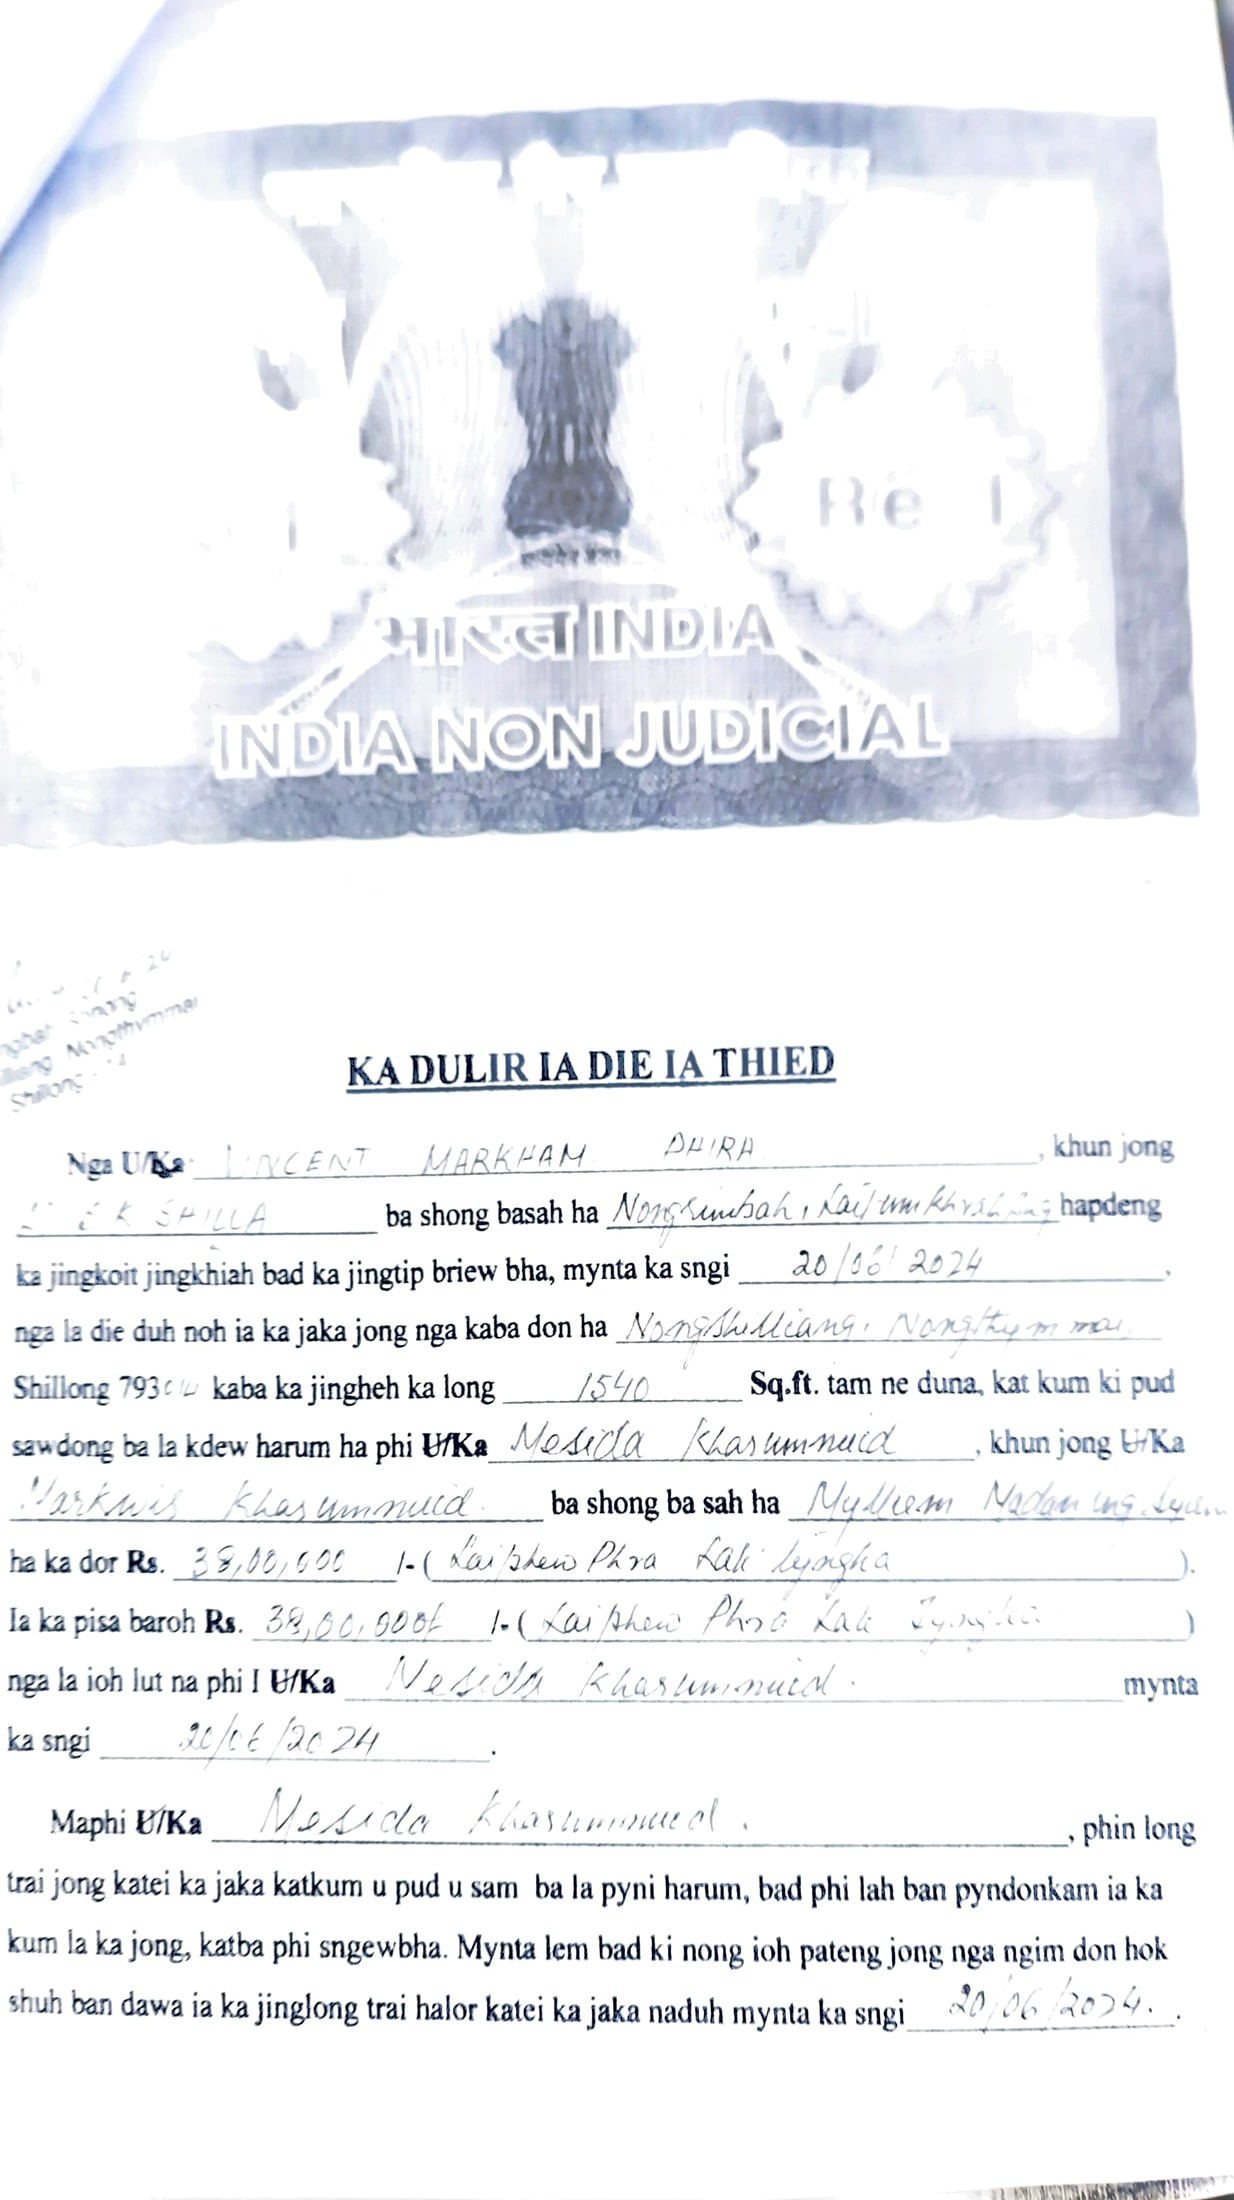 Re 1
भारत INDIA
INDIA NON JUDICIAL
Nongthymmai
Shillong
KA DULIR IA DIE IA THIED
Nga U/Ka VINCENT MARKHAM DHIRA, khun jong
SHILLA ba shong basah ha Nongrimbah, Laitumkhrah hapdeng
ka jingkoit jingkhiah bad ka jingtip briew bha, mynta ka sngi 20/06/2024,
nga la die duh noh ia ka jaka jong nga kaba don ha Nongshilliang, Nongthymmai,
Shillong 793014 kaba ka jingheh ka long 1540 Sq.ft. tam ne duna, kat kum ki pud
sawdong ba la kdew harum ha phi U/Ka Mesida Kharummuid, khun jong U/Ka
Markwis Kharummuid ba shong ba sah ha Mylliem Madan
ha ka dor Rs. 38,00,000 /- (Laiphew Phra Lak tyngka).
Ia ka pisa baroh Rs. 38,00,000/ /- (Laiphew Phra Lak Tyngka)
nga la ioh lut na phi I U/Ka Mesida Kharummuid. mynta
ka sngi 20/06/2024.
Maphi U/Ka Mesida Kharummuid., phin long
trai jong katei ka jaka katkum u pud u sam ba la pyni harum, bad phi lah ban pyndonkam ia ka
kum la ka jong, katba phi sngewbha. Mynta lem bad ki nong ioh pateng jong nga ngim don hok
shuh ban dawa ia ka jinglong trai halor katei ka jaka naduh mynta ka sngi 20/06/2024.